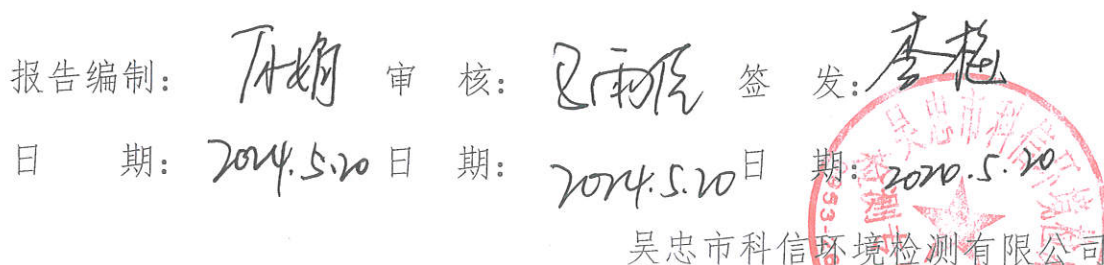 报告编制： 审 核： 签 发：李梅
日 期：2024.5.20 日 期：2024.5.20 日 期：2020.5.20
吴忠市科信环境检测有限公司